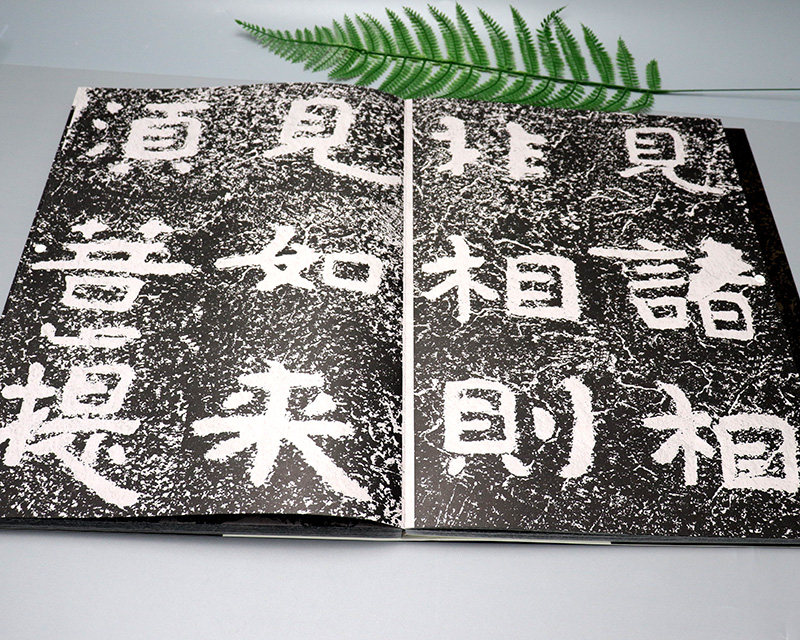 見諸相
非相則
見如来
湏菩提